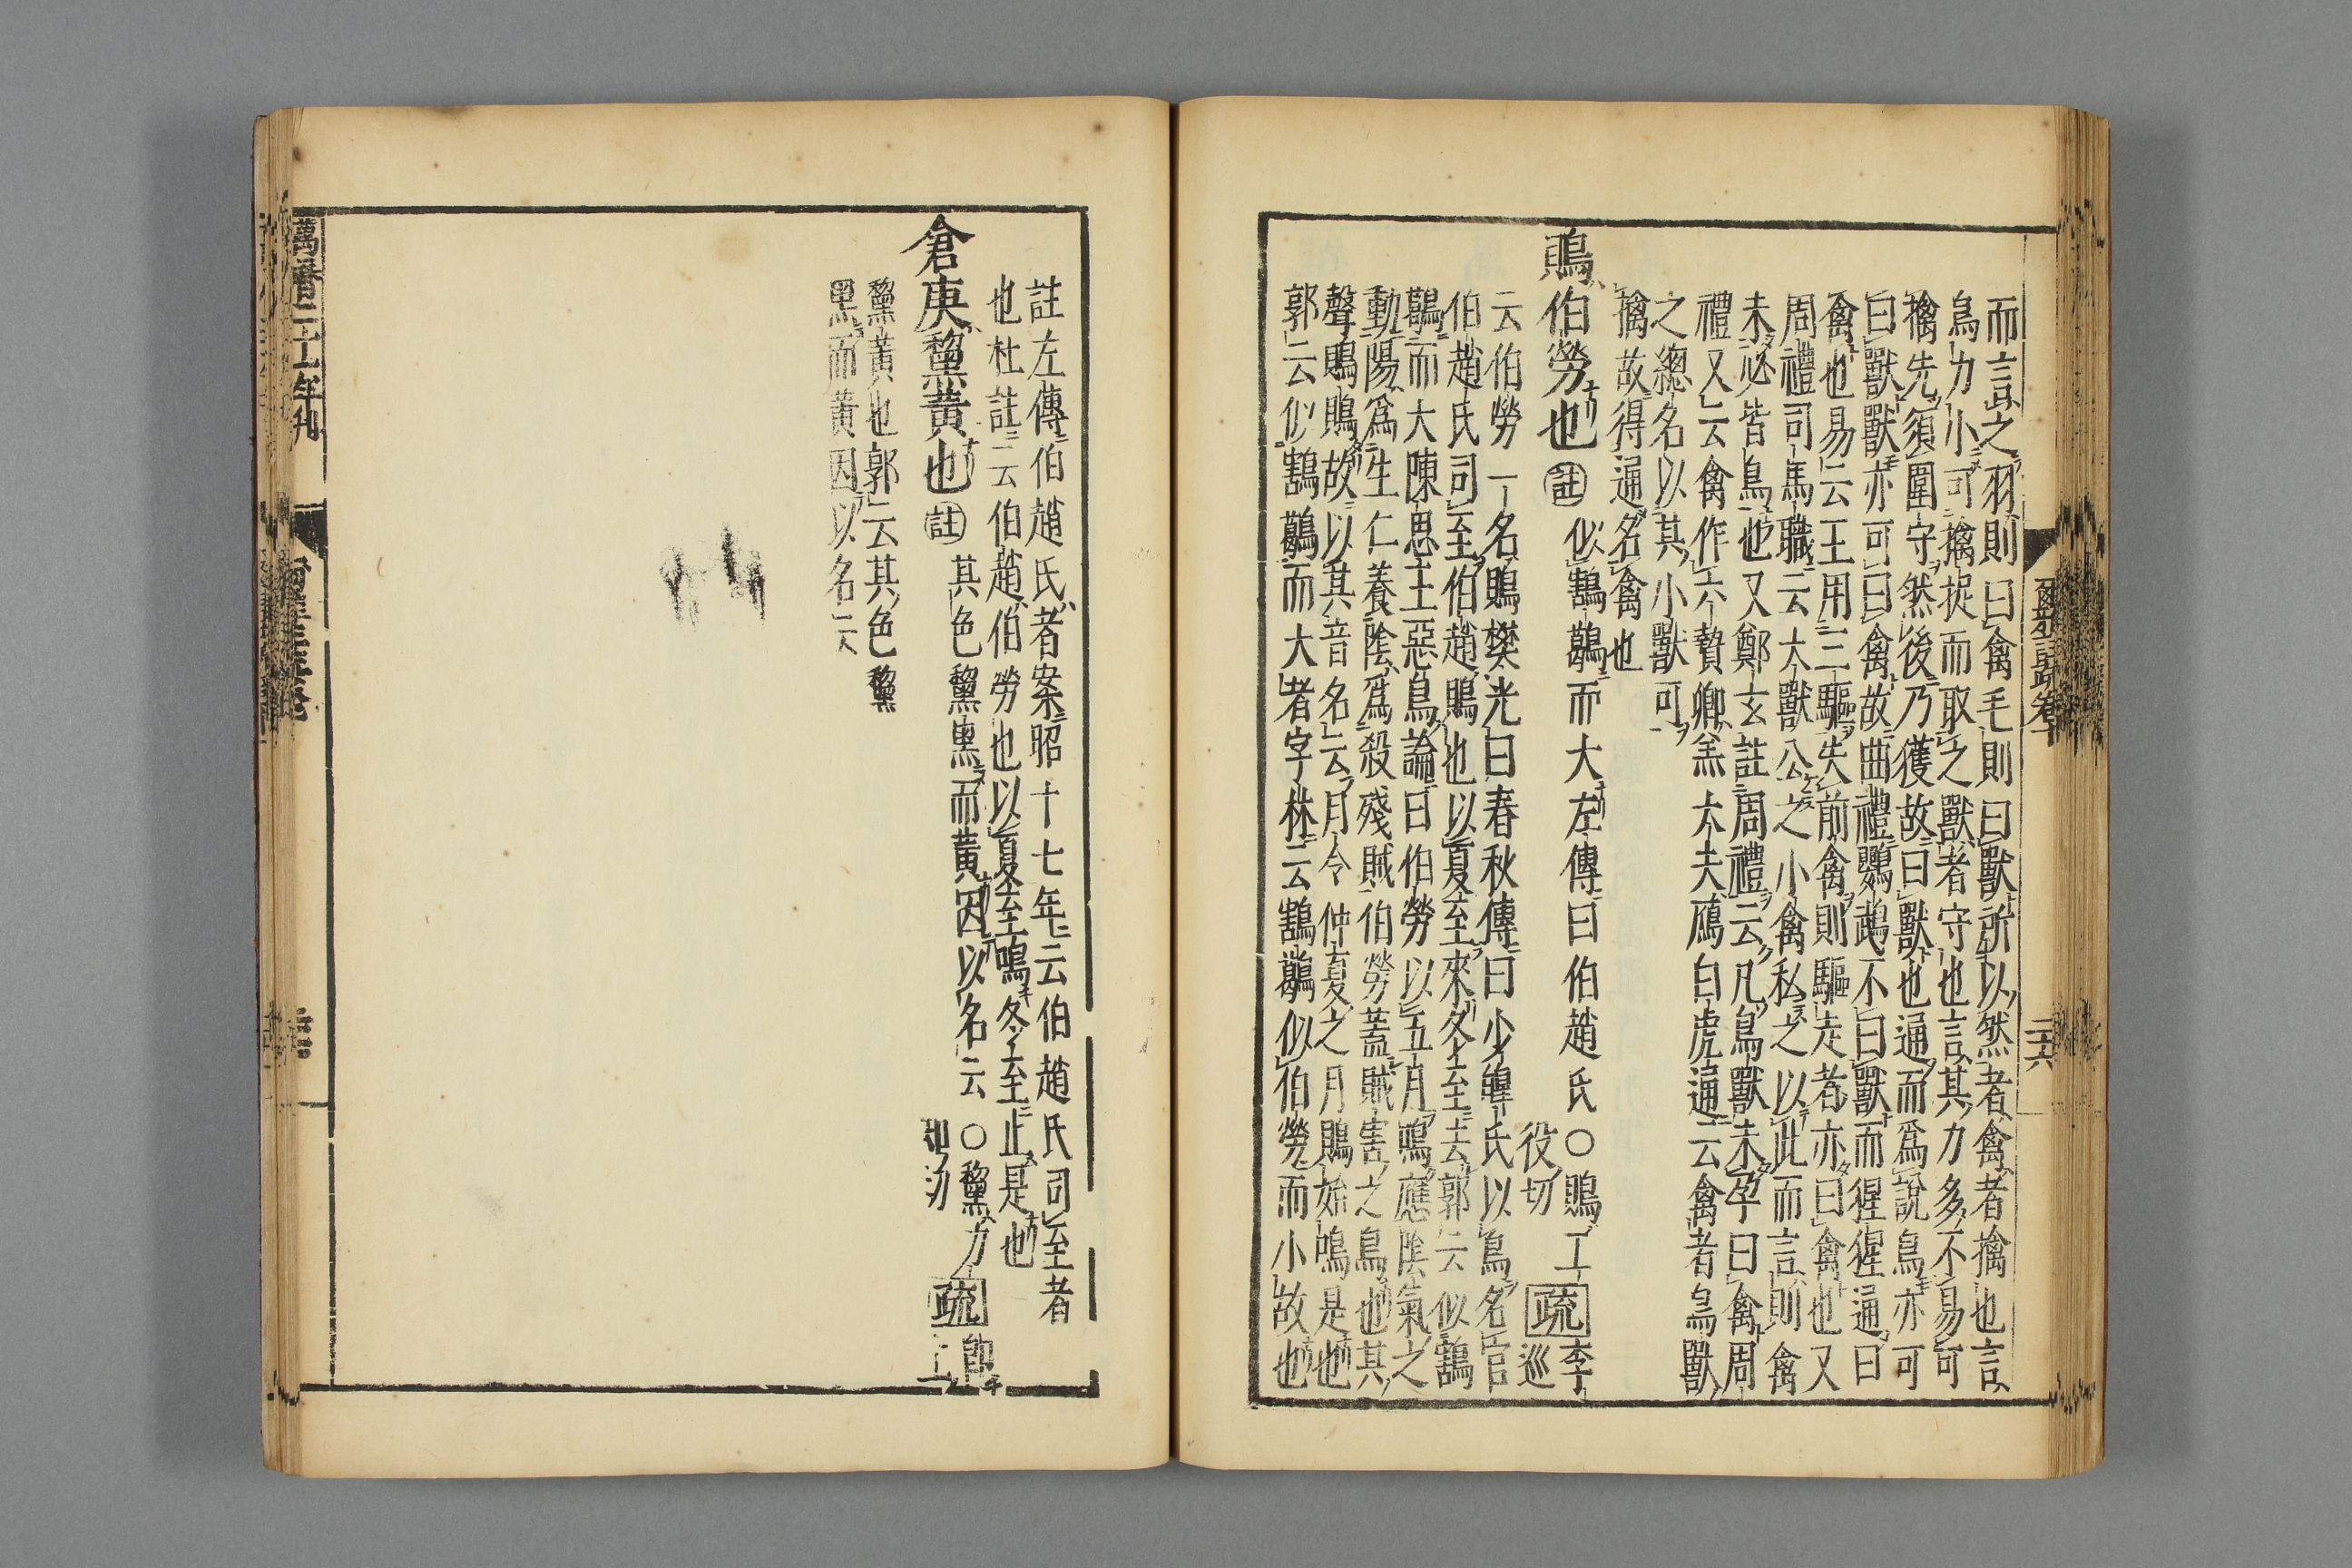 爾雅疏卷十
二十六
而言之羽則曰禽毛則曰獸所以然者禽者擒也言
鳥力小可擒捉而取之獸者守也言其力多不易可
擒先須圍守然後乃獲故曰獸也通而爲說鳥亦可
曰獸獸亦可曰禽故曲禮鸚鵡不曰獸而猩猩通曰
禽也易云王用三驅失前禽則驅走者亦曰禽也又
周禮司馬職云大獸公之小禽私之以此而言則禽
未必皆鳥也又鄭玄註周禮云凡鳥獸未孕曰禽周
禮又云禽作六贄卿羔大夫鴈白虎通云禽者鳥獸
之總名以其小獸可
擒故得通名禽也
鵙伯勞也
註似鶷鶡而大左傳曰伯趙氏○鵙工
役切
疏李
巡
云伯勞一名鵙樊光曰春秋傳曰少皥氏以鳥名官
伯趙氏司至伯趙鵙也以夏至來冬至去郭云似鶷
鶡而大陳思王惡鳥論曰伯勞以五月鳴應陰氣之
動陽爲生仁養陰爲殺殘賊伯勞蓋賊害之鳥也其
聲鵙鵙故以其音名云月令仲夏之月鵙始鳴是也
郭云似鶷鶡而大者字林云鶷鶡似伯勞而小故也
註左傳伯趙氏者案昭十七年云伯趙氏司至者
也杜註云伯趙伯勞也以夏至鳴冬至止是也
倉庚黧黃也
註其色黧黑而黃因以名云○黧力
知切
疏即
黧黃也郭云其色黧
黑而黃因以名云
萬曆二十一年刊